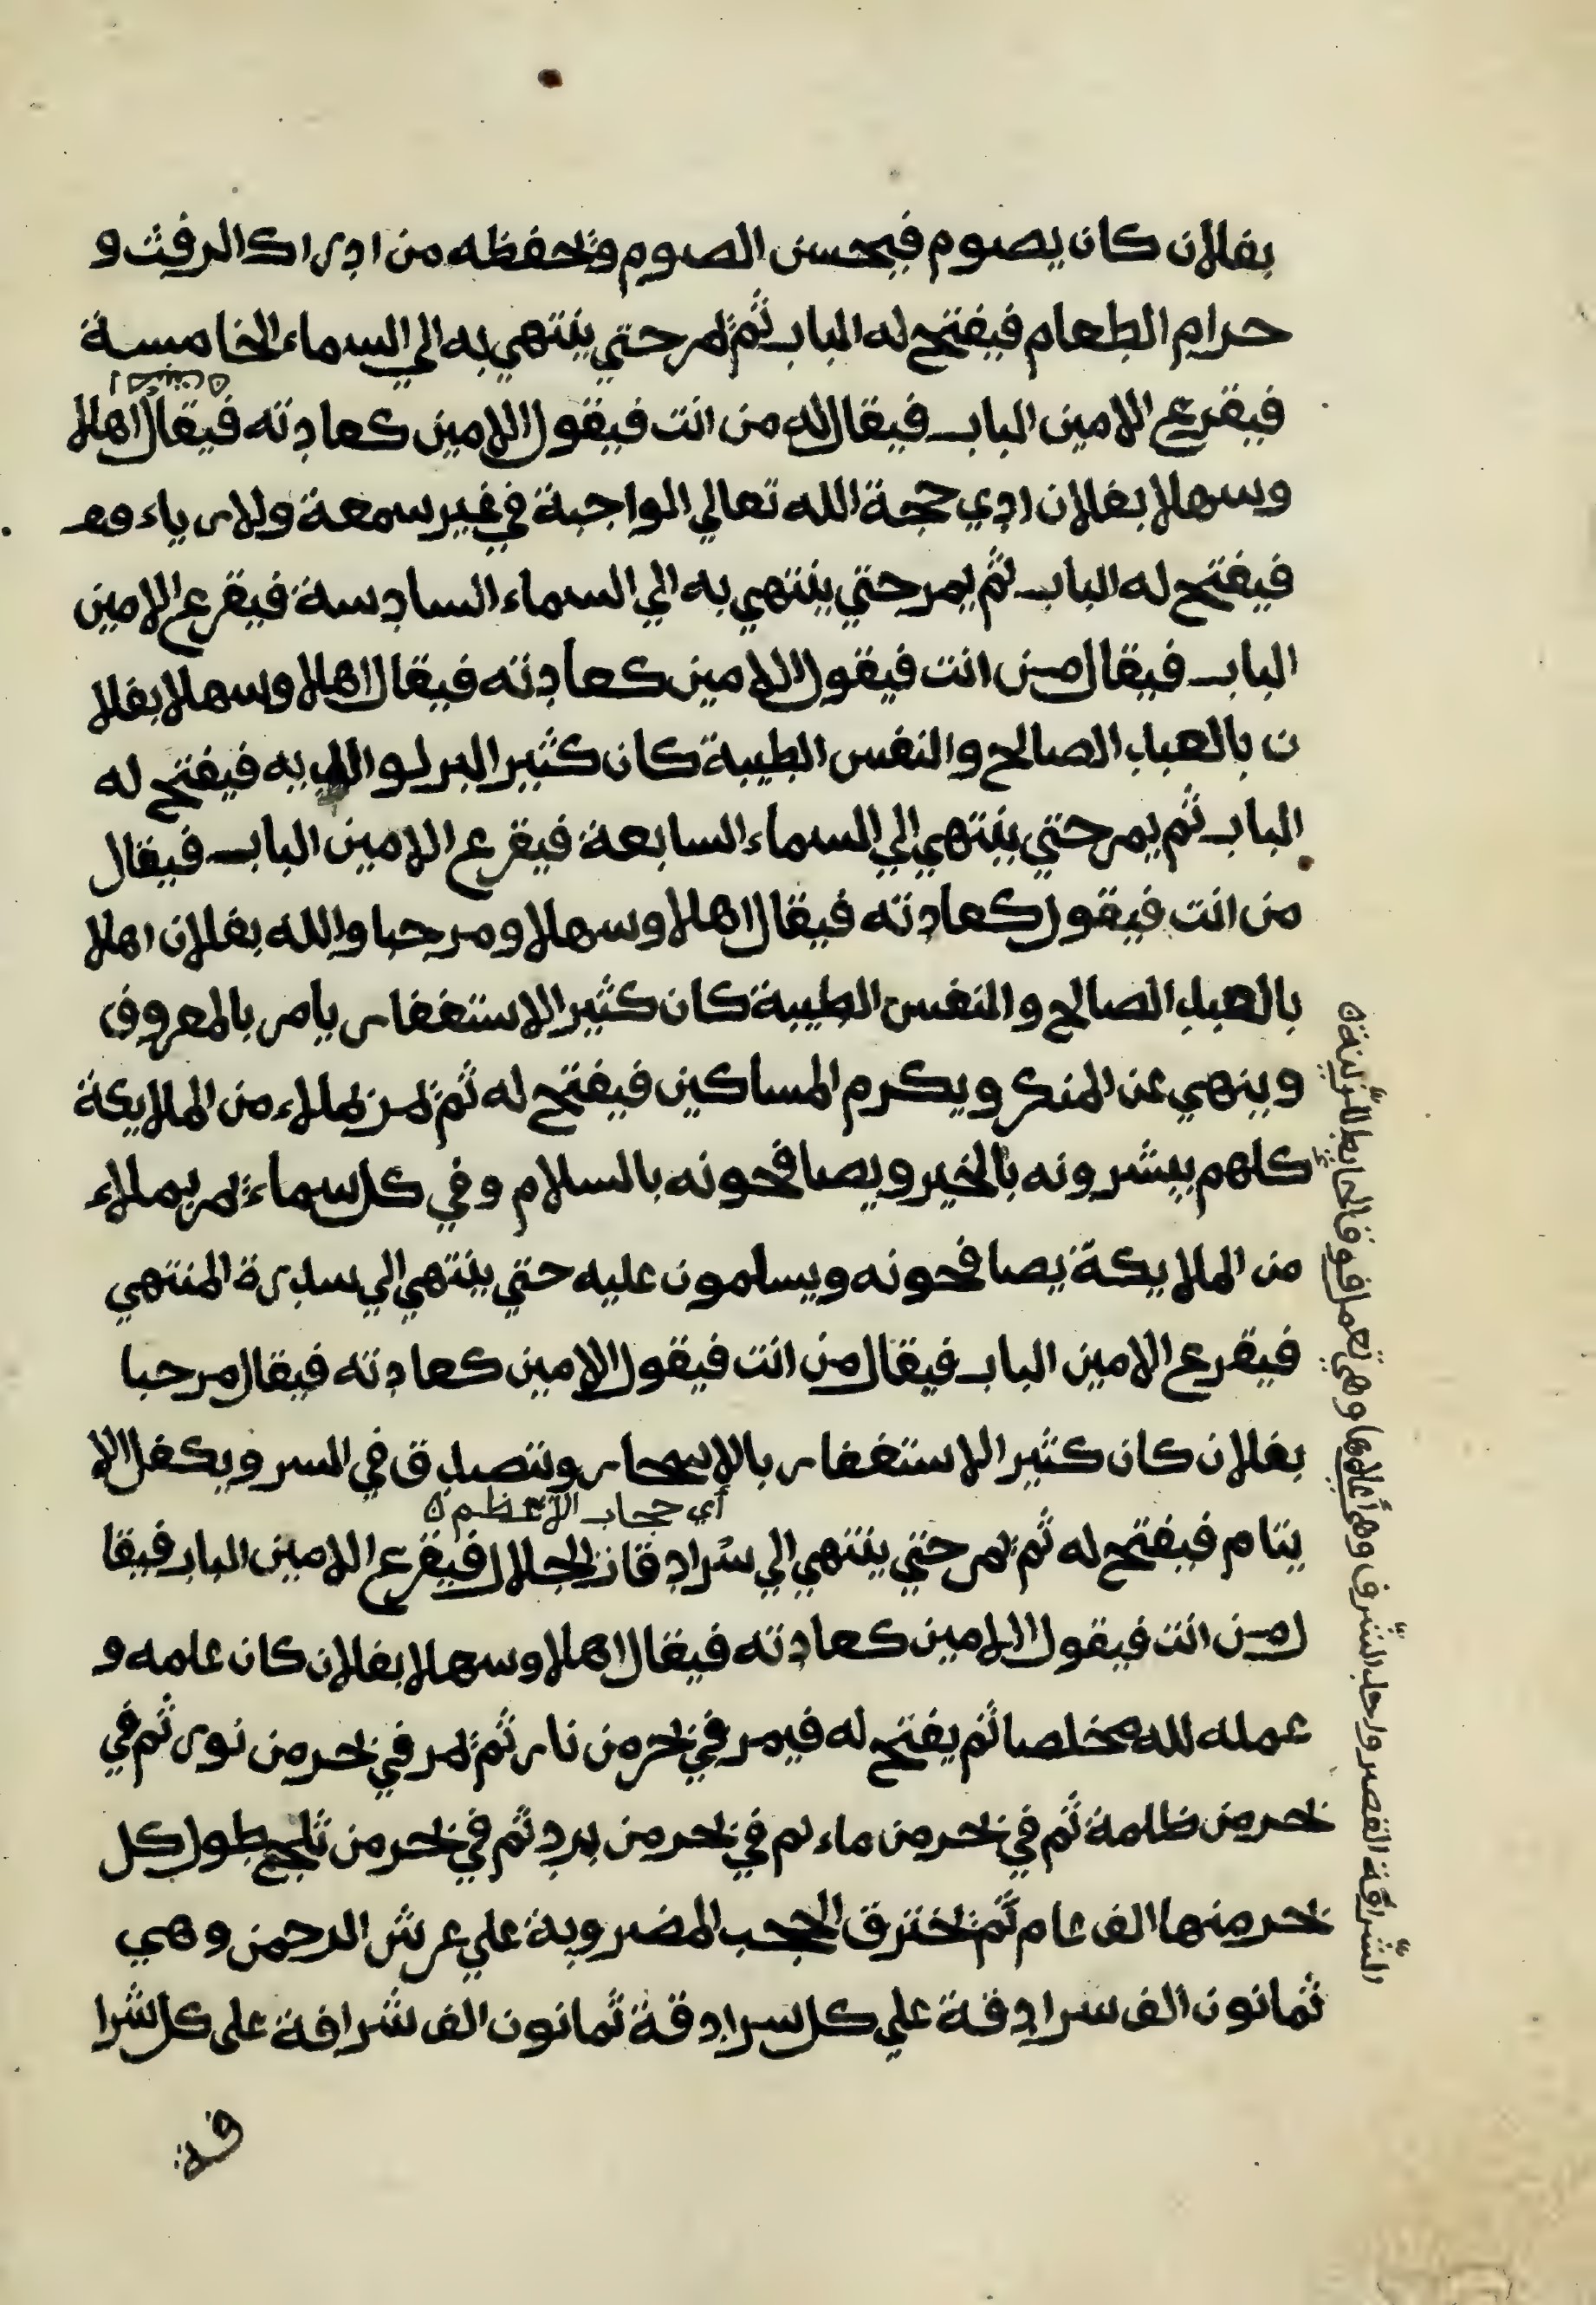 بفلان كان يصوم فيحسن الصوم ويحفظه من ادراك الرفث و
حرام الطعام فيفتح له الباب ثم يمر حتي ينتهي به الي السماء الخامسة
فيقرع الامين الباب فيقال له من انت فيقول الامين كعادته فيقال اهلا
وسهلا بفلان ادي حجة الله تعالي الواجبة في غير سمعة ولا رياء
فيفتح له الباب ثم يمر حتي ينتهي به الي السماء السادسة فيقرع الامين
الباب فيقال من انت فيقول الامين كعادته فيقال اهلا وسهلا بفلا
ن بالعبد الصالح والنفس الطيبة كان كثير البر لوالديه فيفتح له
الباب ثم يمر حتي ينتهي الي السماء السابعة فيقرع الامين الباب فيقال
من انت فيقول كعادته فيقال اهلا وسهلا ومرحبا والله بفلان اهلا
بالعبد الصالح والنفس الطيبة كان كثير الاستغفار يامر بالمعروف
وينهي عن المنكر ويكرم المساكين فيفتح له ثم يمر بملاء من الملايكة
كلهم يبشرونه بالخير ويصافحونه بالسلام وفي كل سماء يمر بملاء
من الملايكة يصافحونه ويسلمون عليه حتي ينتهي الي سدرة المنتهي
فيقرع الامين الباب فيقال من انت فيقول الامين كعادته فيقال مرحبا
بفلان كان كثير الاستغفار بالاسحار ويتصدق في السر ويكفل الا
أي حجاب الأعظم
يتام فيفتح له ثم يمر حتي ينتهي الي سرادقات الجلال فيقرع الامين الباب فيقا
ل من انت فيقول الامين كعادته فيقال اهلا وسهلا بفلان كان علمه و
عمله لله مخلصا ثم يفتح له فيمر في بحر من نار ثم يمر في بحر من نور ثم في
بحر من ظلمة ثم في بحر من ماء ثم في بحر من برد ثم في بحر من ثلج طول كل
بحر منها الف عام ثم يخترق الحجب المضروبة علي عرش الرحمن وهي
ثمانون الف سرادقة علي كل سرادقة ثمانون الف شرافة على كل شرا
فة
الشرافة القصر واحد الشرف وهو أعلاها وهي تعمر فوق الحايط للزينة